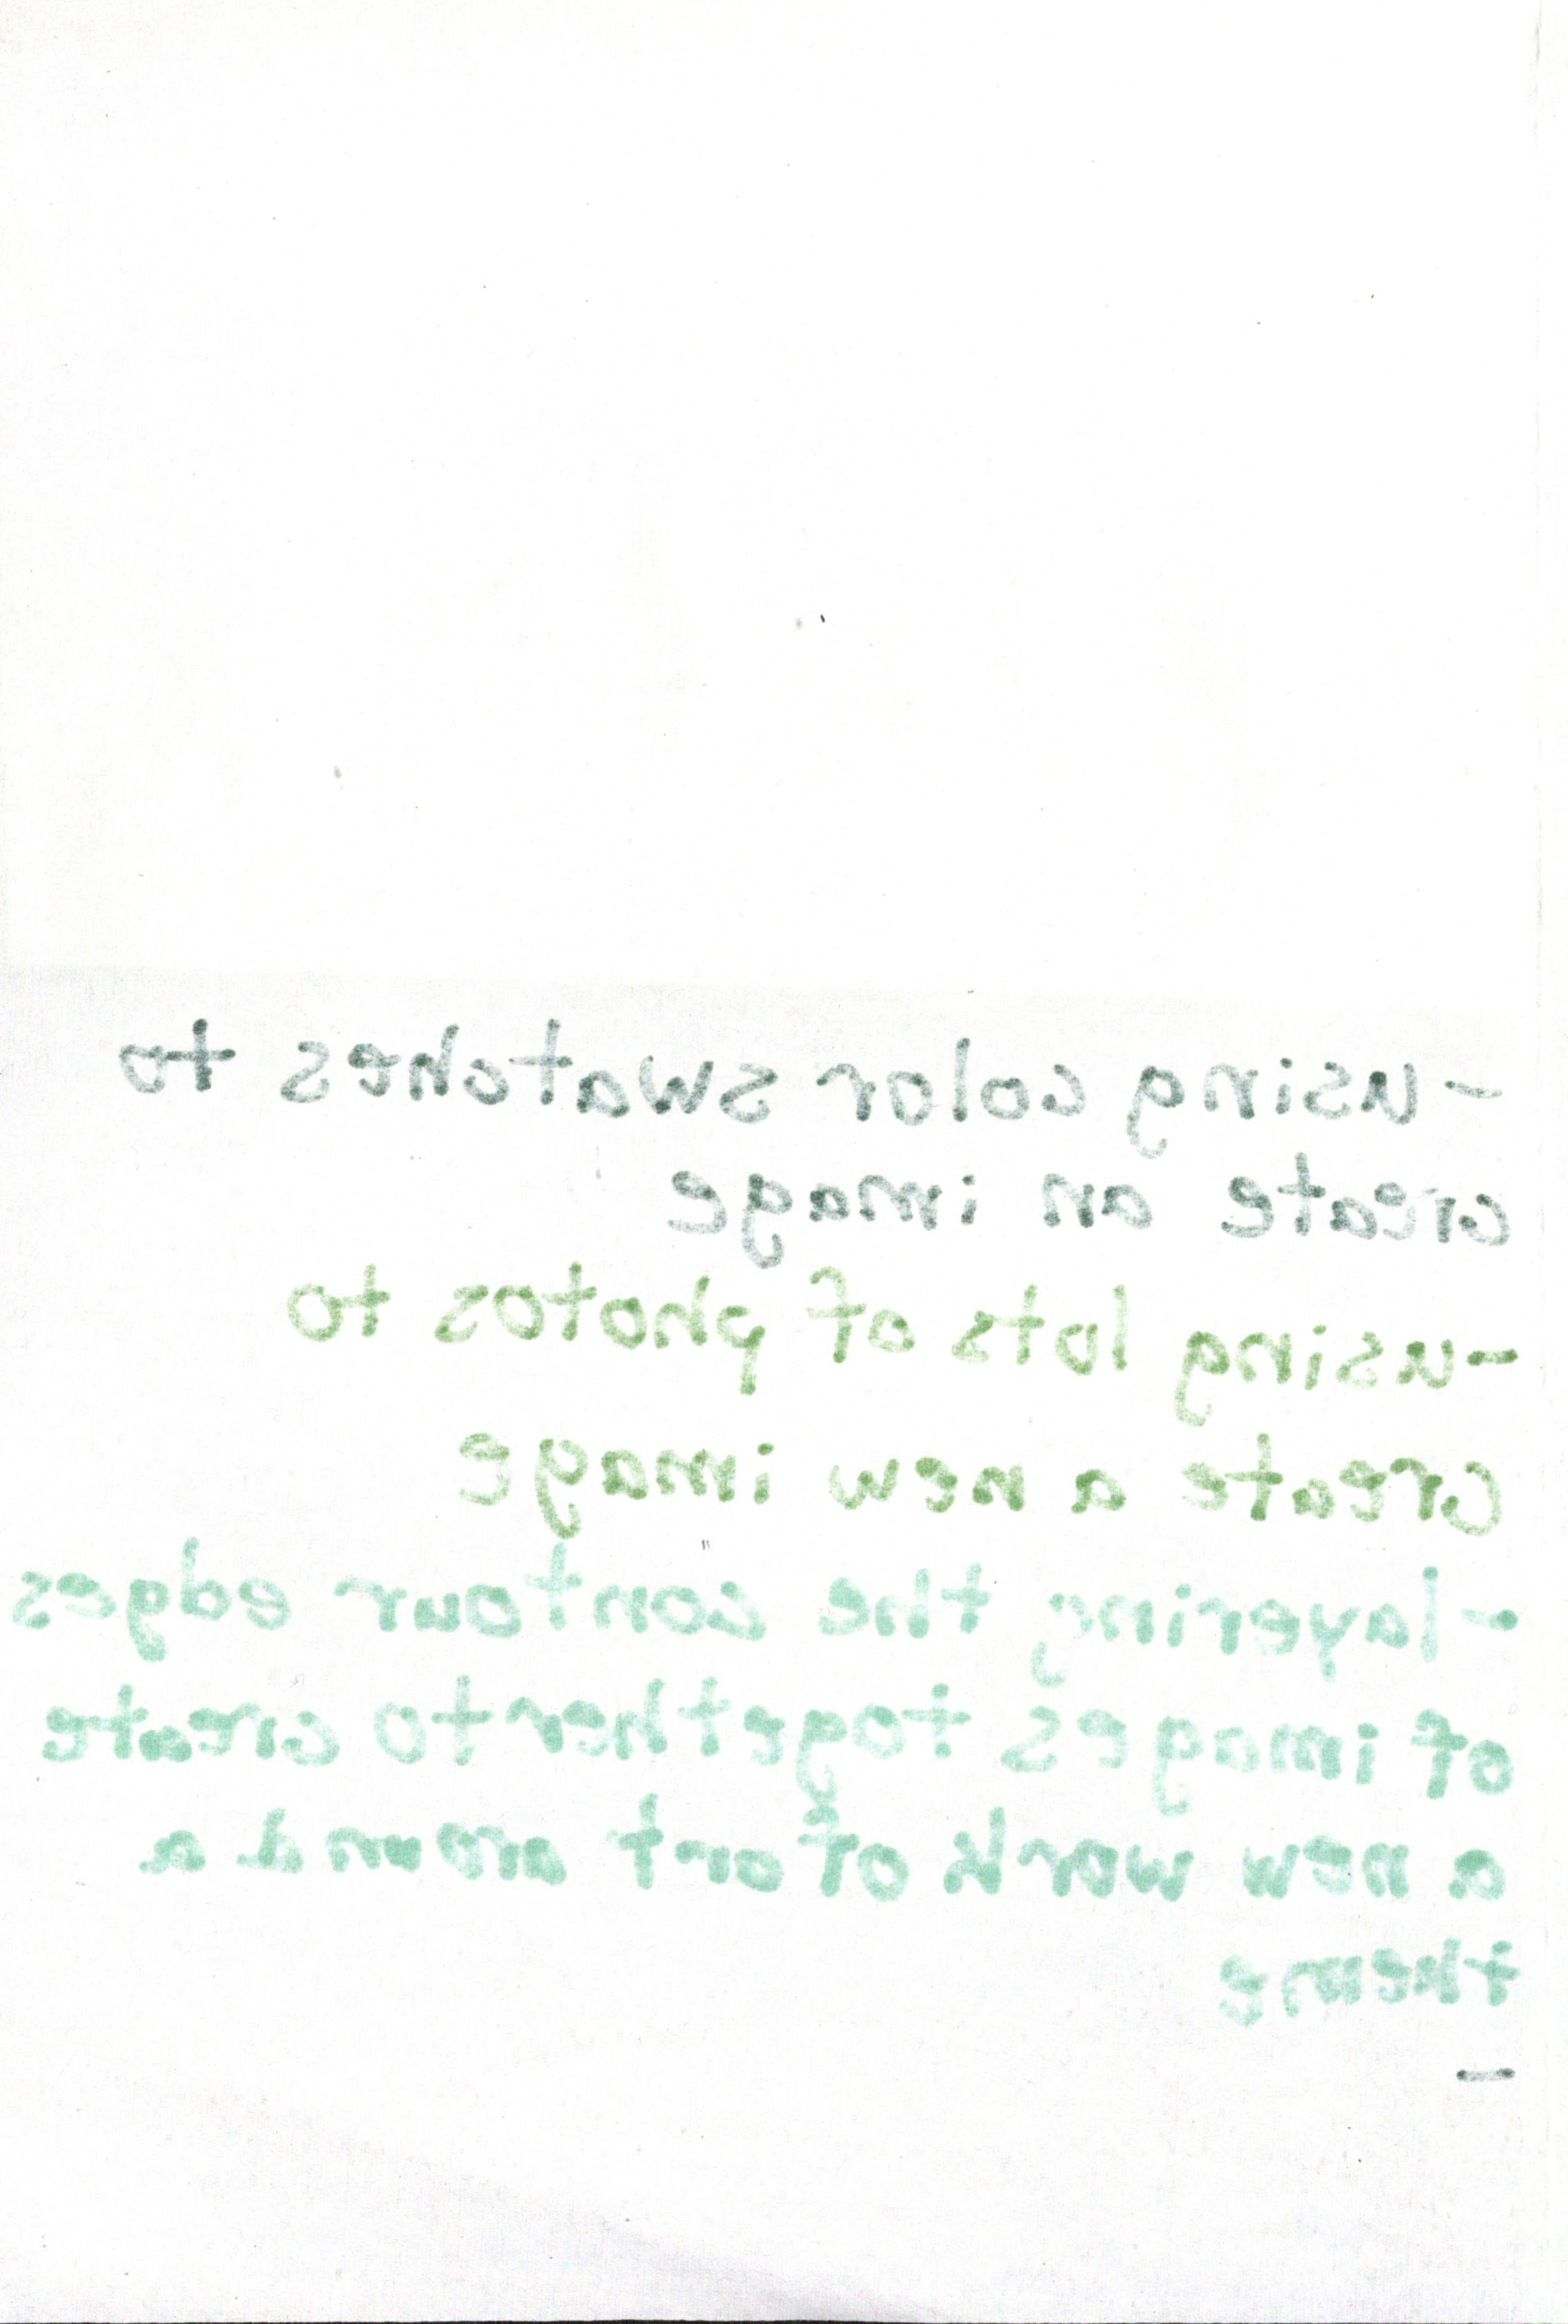 -using color swatches to
create an image
-using lots of photos to
create a new image
-layering the contour edges
of images together to create
a new work of art around a
theme
-